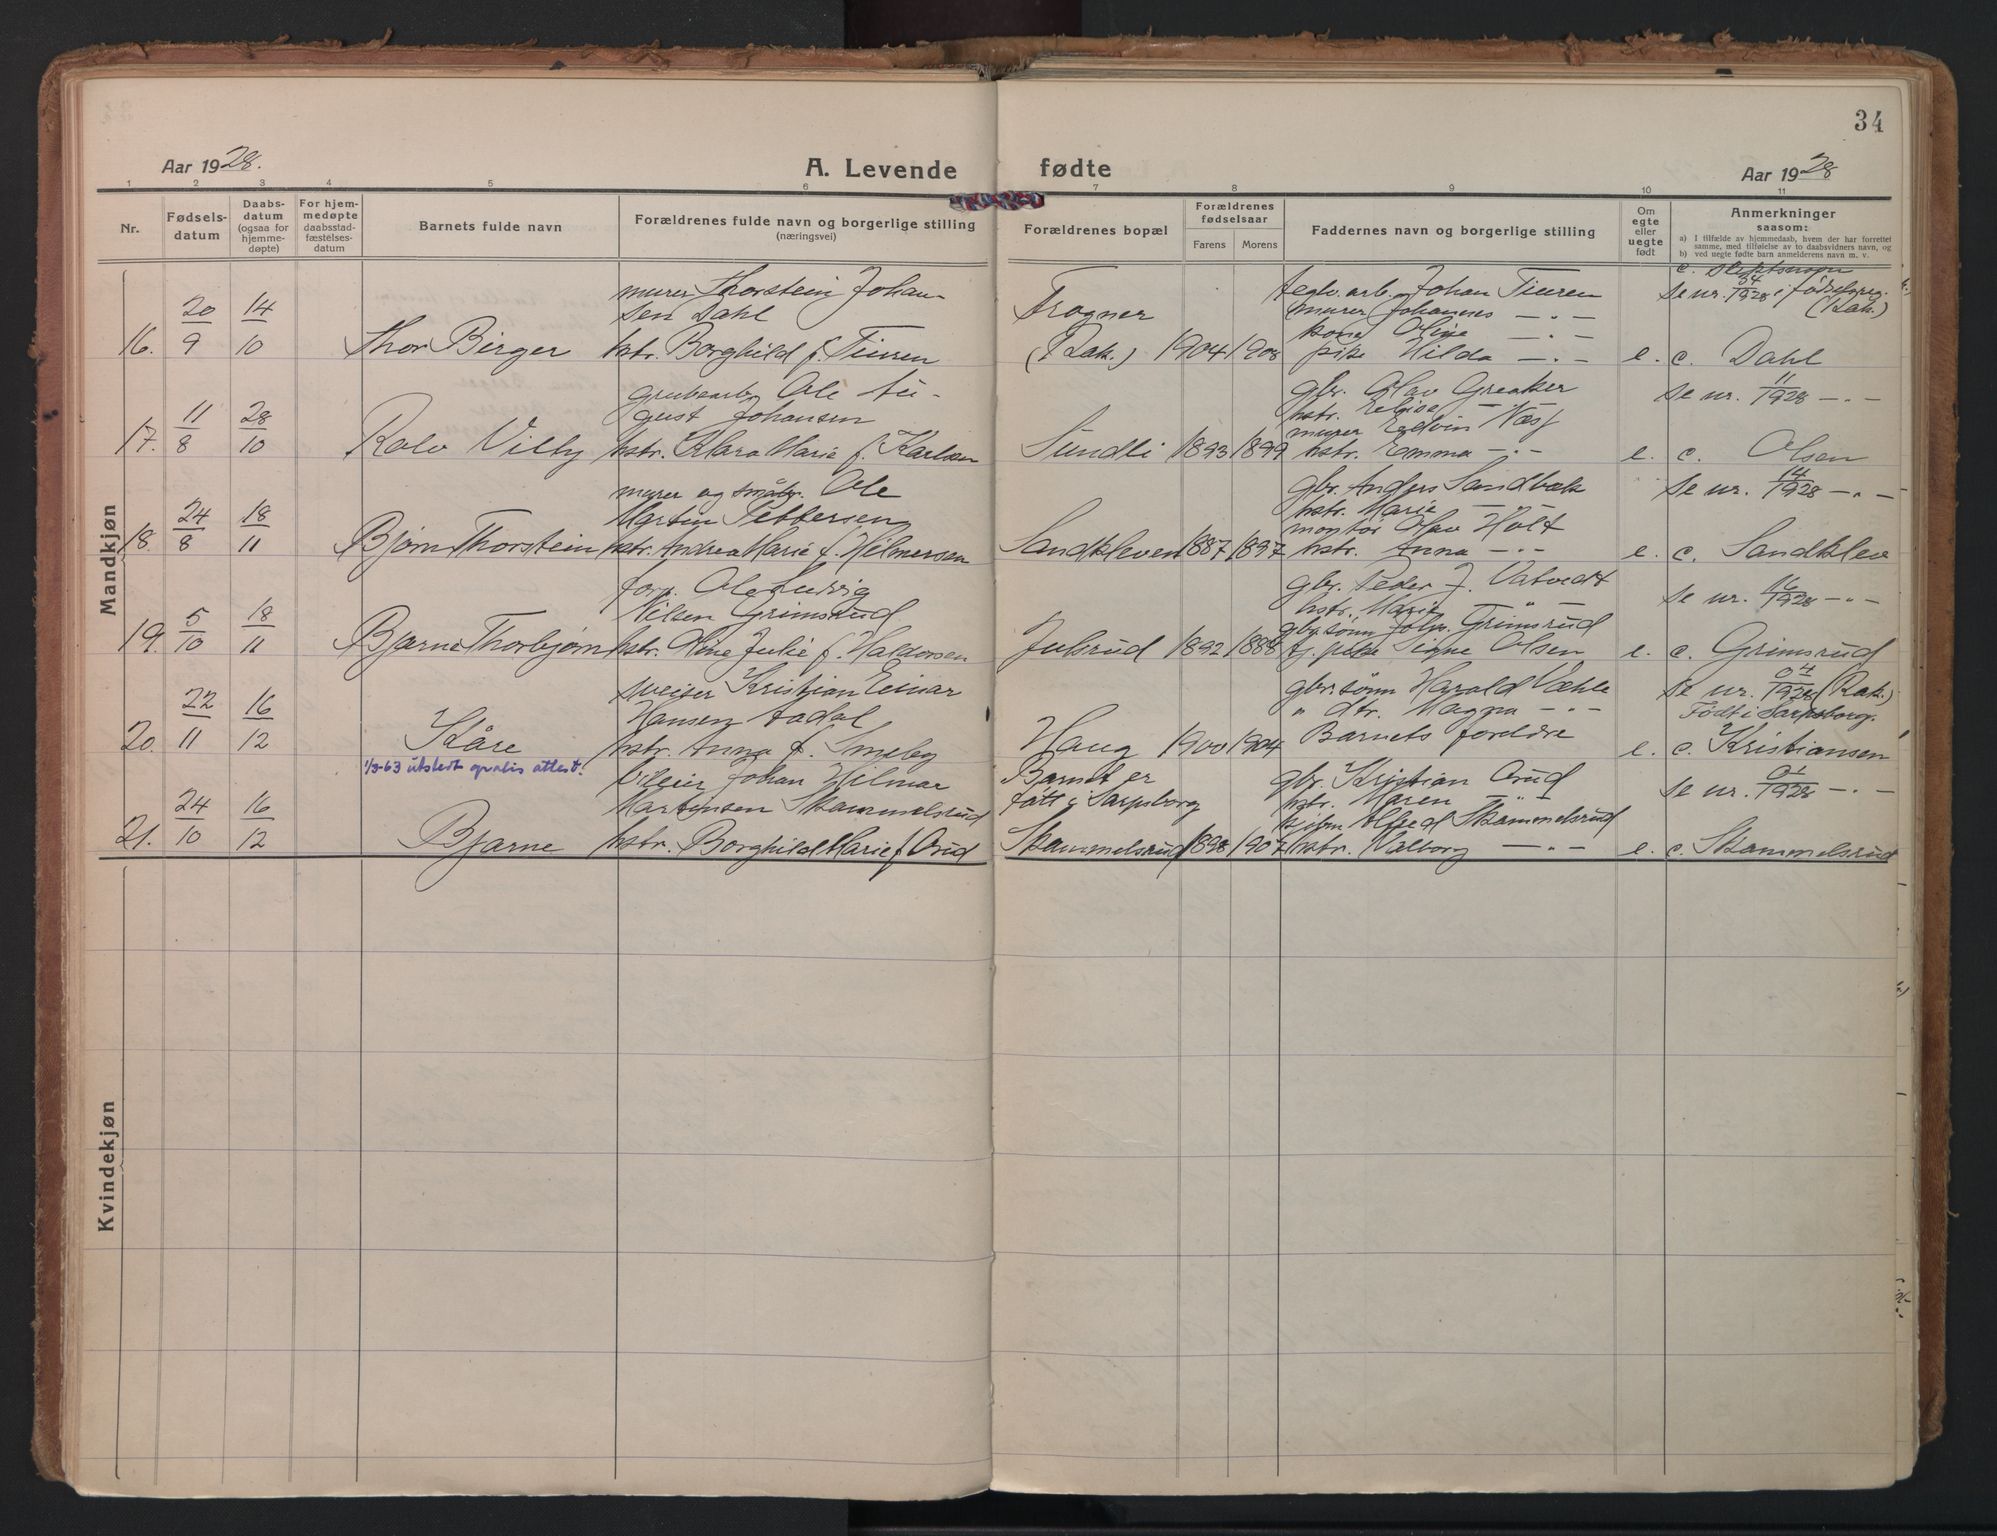 34
Aar 1928.
A. Levende fødte
Aar 1928
1 2 3 4 5 6 7 8 9 10 11
Nr.
Fødsels-
datum
Daabs-
datum
(ogsaa for
hjemme-
døpte)
For hjem-
medøpte
daabsstad-
fæstelses-
datum
Barnets fulde navn
Forældrenes fulde navn og borgerlige stilling
(næringsvei)
Forældrenes bopæl
Forældrenes
fødselsaar
Farens Morens
Faddernes navn og borgerlige stilling
Om
egte
eller
uegte
født
Anmerkninger
saasom:
a) I tilfælde av hjemmedaab, hvem der har forrettet
samme, med tilføielse av to daabsvidners navn, og
b) ved uegte fødte barn anmelderens navn m. v.
c. slektsnavn
Mandkjøn
16. 20/9 14/10 Thor Birger
murer Thorstein Johan-
sen Dahl
hstr. Borghild f. Tiuren
Trogner
(Rak.) 1904 1908
teglv. arb. Johan Tiuren
murer Johannes — " —
kone Oline — " —
pike Hilda — " —
e. c. Dahl
Se nr. 34/1928 i fødselsreg.
(Rak.)
17. 11/8 28/10 Rolv Villy
grubearb. Ole Au-
gust Johansen
hstr. Klara Marie f. Karlsen
Sundli 1893 1899
gbr. Olav Greaker
hstr. — " —
murer Edvin Næss
hstr. Emma — " —
e. c. Olsen
Se nr. 11/1928 — " —
18. 24/8 18/11 Bjørn Thorstein
murer og småbr. Ole
Martin Pettersen
hstr. Andrea Marie f. Hilmersen
Sandkleven 1887 1897
gbr. Anders Sandbæk
hstr. Marie — " —
montør Olav Holt
hstr. Anna — " —
e. c. Sandklev
Se nr. 14/1928 — " —
19. 5/10 18/11 Bjarne Thorbjørn
forp. Ole Ludvig
Nilsen Grimsrud
hstr. Oline Julie f. Haldorsen
Julsrud 1892 1888
gbr. Peder J. Vatvedt
hstr. Marit
gbr.sønn Johs. Grimsrud
tj. pike Signe Olsen
e. c. Grimsrud
Se nr. 16/1928 — " —
20. 22/11 16/12 Kåre
1/3-63 utstedt gratis attest.
sveiser Kristian Einar
Hansen Aadal
hstr. Anna f. Smeby
Haug 1900 1904
gbr.sønn Harald Væhle
" dtr. Magna — " —
Barnets foreldre
e. c. Kristiansen
Se nr. 04/1928 (Rak.)
Født i Sarpsborg.
21. 24/10 16/12 Bjarne
Johan Hilmar
Martinsen Skammelsrud
hstr. Borghild Marie f. Orud
Barnet er
født i Sarpsborg
Skammelsrud 1898 1907
gbr. Kristian Orud
hstr. Maren — " —
Alfred Skammelsrud
hstr. Valborg — " —
e. c. Skammelsrud
Se nr. 01/1928 — " —
Kvindekjøn